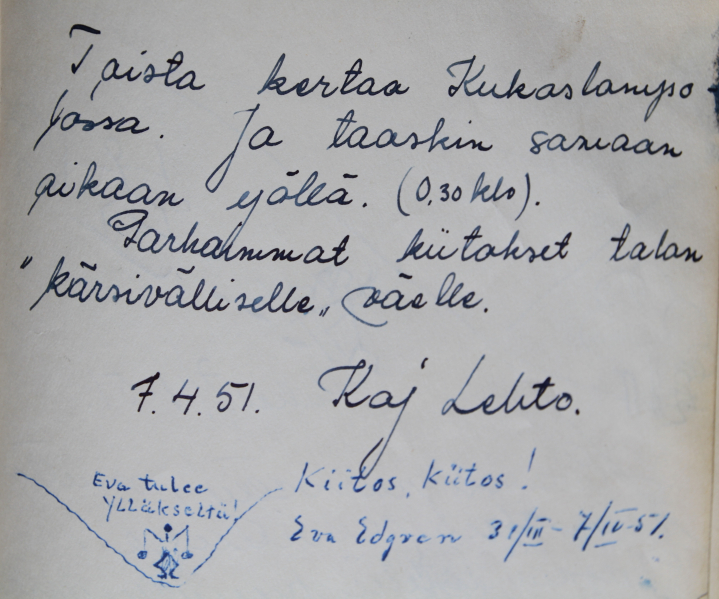 Toista kertaa Kukaslompo
lossa. Ja taaskin samaan
aikaan yöllä. (0,30 klo).
Parhaimmat kiitokset talon
"kärsivälliselle„ väelle.
7.4.51. Kaj Lehto.
Eva tulee
Ylläkseltä!
Kiitos, kiitos!
Eva Edgren 31/III - 7/IV-51.